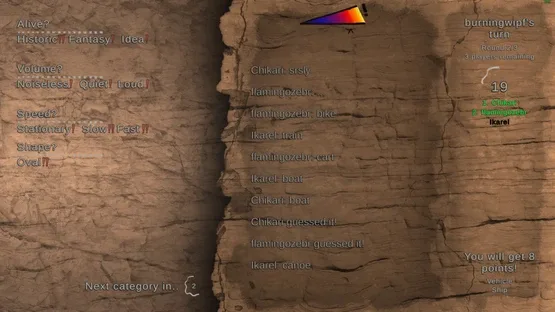 Alive?
Historic!! Fantasy! Idea!
Volume?
Noiseless! Quiet! Loud!
Speed?
Stationary! Slow!! Fast!!
Shape?
Oval!!
Next category in: 2
Chikari: srsly
flamingozebr:
flamingozebr: bike
Ikarel: train
flamingozebr: cart
Ikarel: boat
Chikari: boat
Chikari guessed it!
flamingozebr guessed it!
Ikarel: canoe
burningwipf's
turn
19
Ikarel
You will get 8
points!
Vehicle
Ship